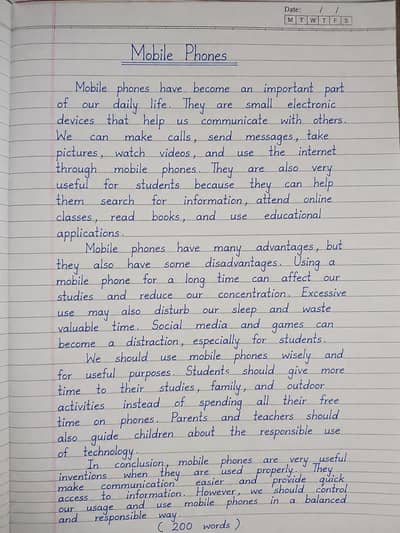 Date: / /
M T W T F S
Mobile Phones
Mobile phones have become an important part
of our daily life. They are small electronic
devices that help us communicate with others.
We can make calls, send messages, take
pictures, watch videos, and use the internet
through mobile phones. They are also very
useful for students because they can help
them search for information, attend online
classes, read books, and use educational
applications.
Mobile phones have many advantages, but
they also have some disadvantages. Using a
mobile phone for a long time can affect our
studies and reduce our concentration. Excessive
use may also disturb our sleep and waste
valuable time. Social media and games can
become a distraction, especially for students.
We should use mobile phones wisely and
for useful purposes. Students should give more
time to their studies, family, and outdoor
activities instead of spending all their free
time on phones. Parents and teachers should
also guide children about the responsible use
of technology.
In conclusion, mobile phones are very useful
inventions when they are used properly. They
make communication easier and provide quick
access to information. However, we should control
our usage and use mobile phones in a balanced
and responsible way.
( 200 words )